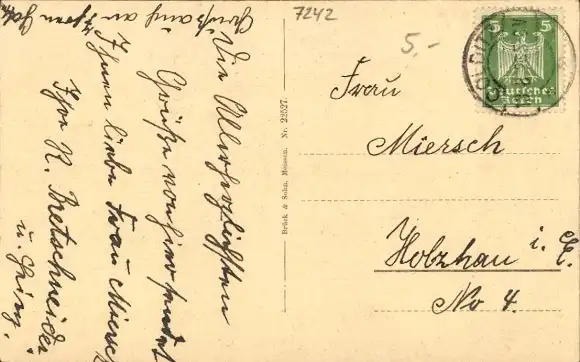 7242
5,-
5 5
Deutsches
Reich
Frau
Miersch
Holzhau i. E.
No 4.
Brück & Sohn, Meissen. Nr. 22527.
Die Allerherzlichsten
Grüße von hier sendet
Ihnen liebe Frau Miersch
Ihre R. Bretschneider
u.
Gruß auch an